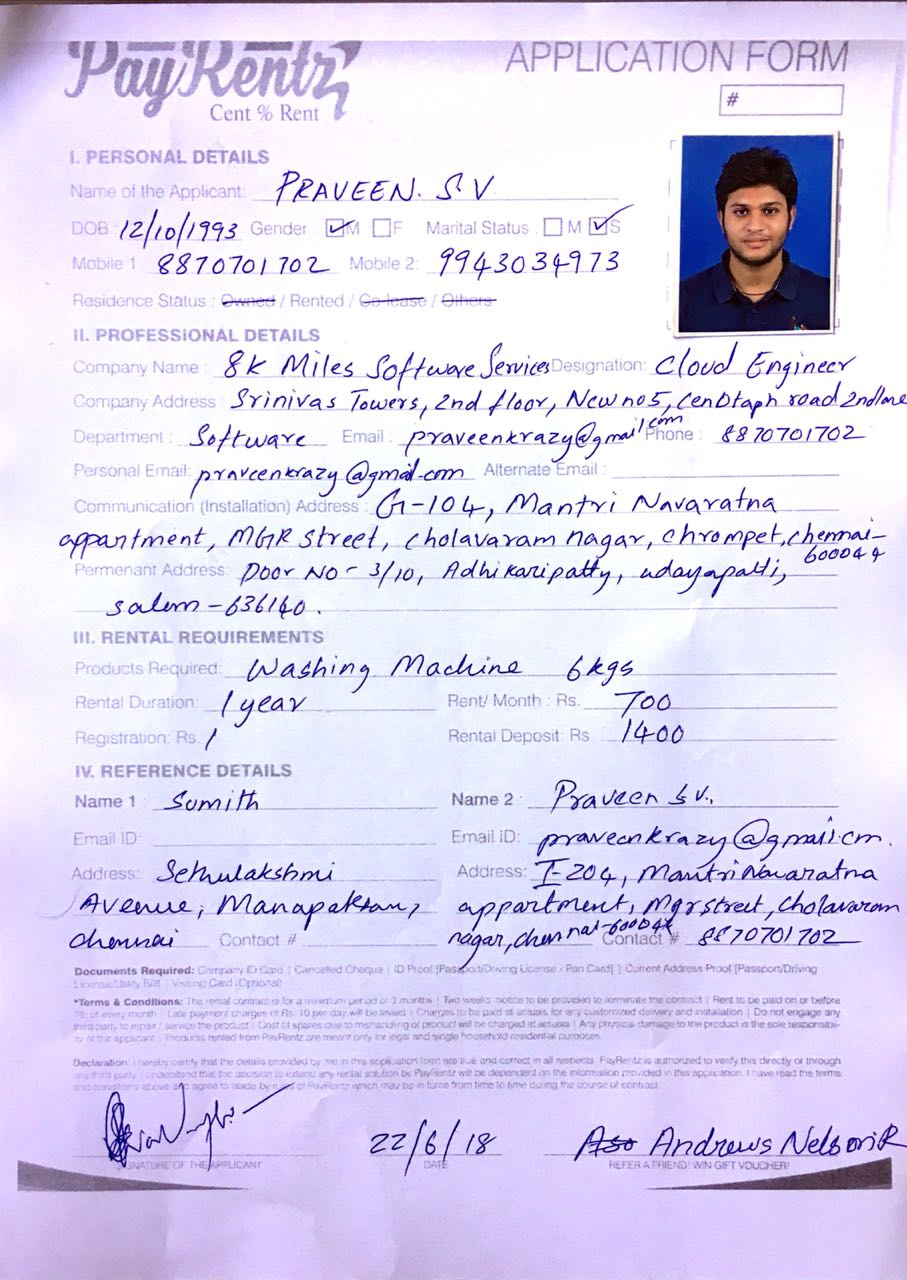 PayRentz
Cent % Rent
APPLICATION FORM
#
I. PERSONAL DETAILS
Name of the Applicant: PRAVEEN. S V
DOB 12/10/1993 Gender : M F Marital Status : M S
Mobile 1 8870701702 Mobile 2: 9943034973
Residence Status : Owned / Rented / Co-lease / Others
II. PROFESSIONAL DETAILS
Company Name : 8K Miles Software Services Designation: Cloud Engineer
Company Address Srinivas Towers, 2nd floor, New no 5, Cenotaph road 2nd lane
Department : Software Email : praveenkrazy@gmail.com Phone : 8870701702
Personal Email: praveenkrazy@gmail.com Alternate Email :
Communication (Installation) Address : G-104, Mantri Navaratna
appartment, MGR Street, cholavaram nagar, chrompet, chennai-
600044
Permenant Address: Door No - 3/10, Adhikaripatty, udayapatti,
salem - 636140.
III. RENTAL REQUIREMENTS
Products Required: Washing Machine 6kgs
Rental Duration: 1 year Rent/ Month : Rs. 700
Registration: Rs. / Rental Deposit: Rs 1400
IV. REFERENCE DETAILS
Name 1 : Sumith Name 2 : Praveen S V.,
Email ID: Email ID: praveenkrazy@gmail.cm.
Address: Sethulakshmi Address: I-204, Mantri Navaratna
Avenue, Manapakkam, appartment, Mgr street, cholavaram
chennai Contact # nagar, chennai-600044 Contact # 8870701702
Documents Required: Company ID Card | Cancelled Cheque | ID Proof [Passport/Driving License / Pan Card] | Current Address Proof [Passport/Driving
License/Utility Bill] | Visiting Card (Optional)
*Terms & Conditions: The rental contract is for a minimum period of 3 months | Two weeks notice to be provided to terminate the contract | Rent to be paid on or before
7th of every month | Late payment charges of Rs. 10 per day will be levied | Charges to be paid at actuals for any customized delivery and installation | Do not engage any
third party to repair / service the product | Cost of spares due to mishandling of product will be charged at actuals | Any physical damage to the product is the sole responsibi-
ty of the applicant | Products rented from PayRentz are meant only for legal and single household residential purposes.
Declaration: I hereby certify that the details provided by me in this application form are true and correct in all respects. PayRentz is authorized to verify this directly or through
any third party. I understand that the decision to extend any rental solution by PayRentz will be dependent on the information provided in this application. I have read the terms
and conditions above and agree to abide by rules of PayRentz which may be in force from time to time during the course of contract.
22/6/18 Andrews Nelson R
SIGNATURE OF THE APPLICANT DATE REFER A FRIEND! WIN GIFT VOUCHER!